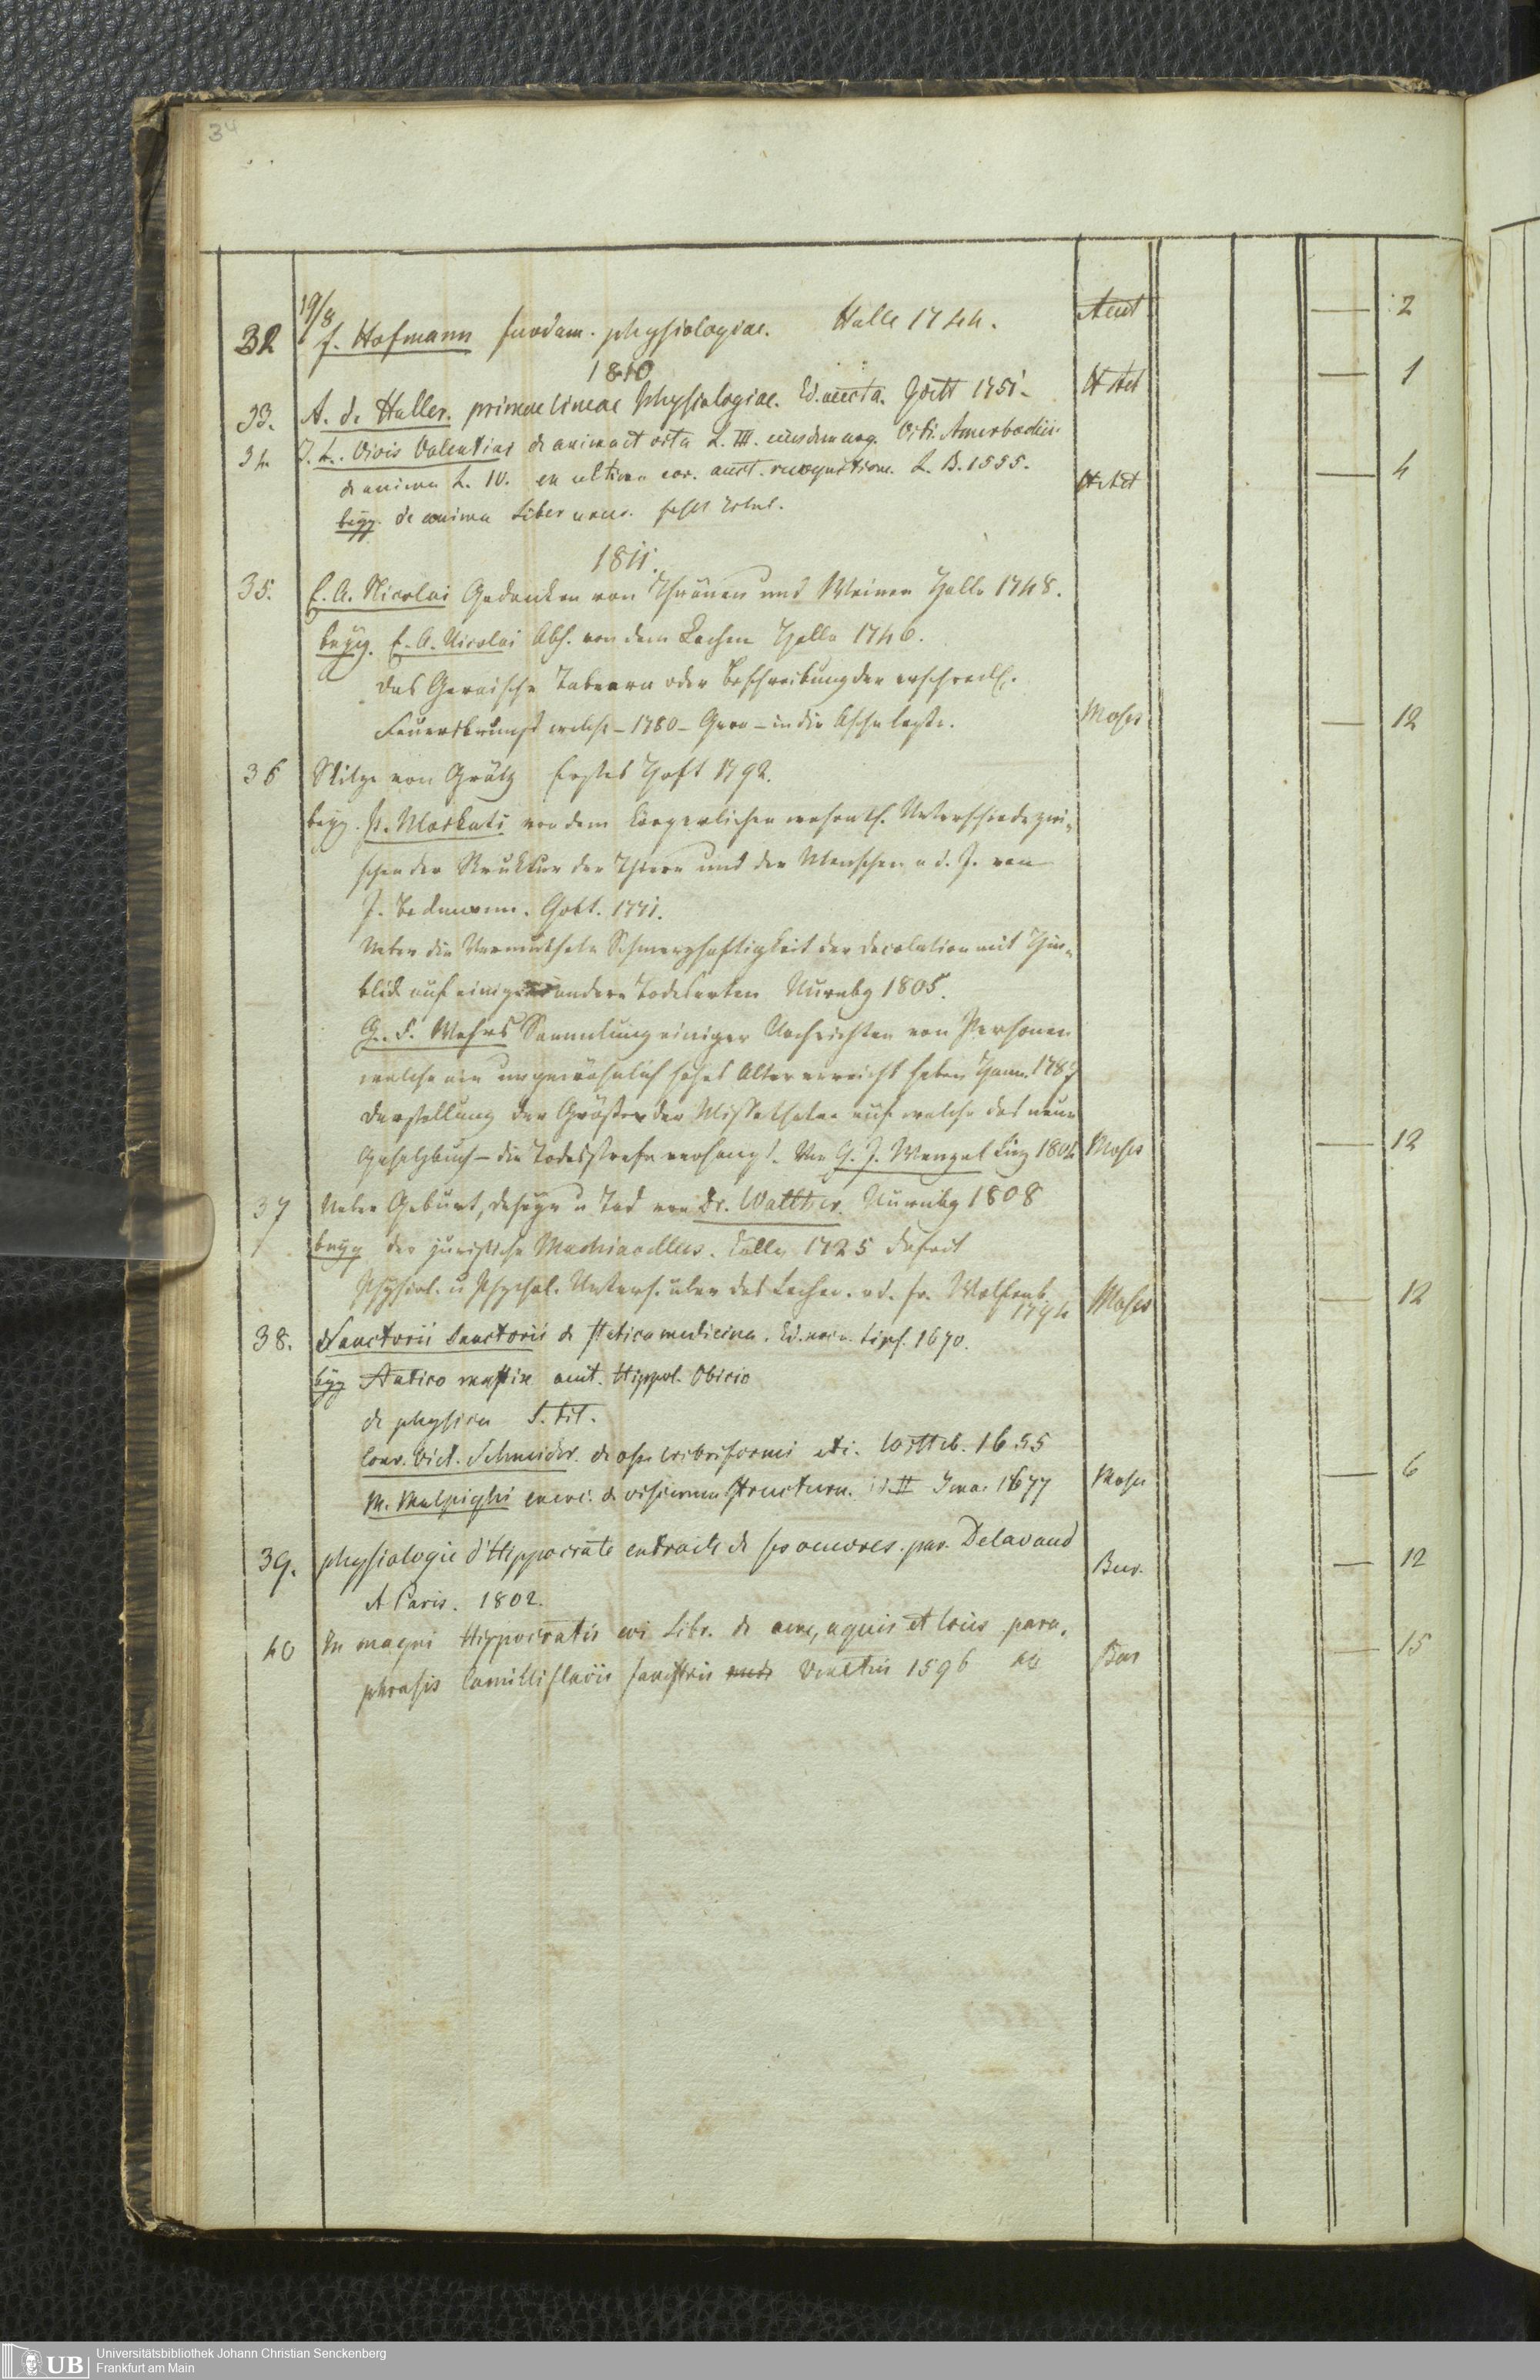 34
19/8
32 f. Hofmann fundam. physiologiae. Halle 1744. Auct — 2
1810
33. A. de Haller. primae lineae physiologiae. Ed. aucta. Goett 1751. H Act — 1
34. J. L. Vivis Valentini de anima et vita L. III. eiusdem arg. Viti. Amerbachii
de anima L. IV. ex ultima eor. auct. recognitione. L. B. 1555. H Act — 4
beyg. de anima Liber unus.
1811.
35. E. A. Nicolai Gedanken von Thränen und Weinen Halle 1748.
beyg. E. A. Nicolai Abh. von dem Lachen Halle 1746.
Das Geraische Zaboara oder Beschreibung der erschreckl.
Feuersbrunst welche – 1780 – Gera – in die Asche legte. Moses — 12
36 Skitze von Grätz Erstes Heft 1792.
beyg. P. Moskati von dem körperlichen wesentl. Unterschiede zwi-
schen der Struktur der Thiere und der Menschen a. d. J. von
J. Beckmann. Gött. 1771.
Ueber die Vermuthete Schmerzhaftigkeit der Decolation mit Hin-
blick auf einige andere Todesarten Nürnbg 1805.
G. F. Wehrs Sammlung einiger Nachrichten von Personen
welche ein ungewöhnlich hohes Alter erreicht haben Hann. 1787
Darstellung der Größe der Missethaten auf welche das neue
Gesetzbuch – die Todesstrafe verhängt. Von G. J. Wenzel Linz 1804 Moses — 12
37 Ueber Geburt, Daseyn u Tod von Dr. Walther. Nürnbg 1808
beyg der juristische Machiavellus. Cölln 1725 defect
Physiol. u Psychol. Unters. über das Lachen. a d. fr. Wolfenb.
1794 Moses — 12
38. Sanctorii Sanctorii de statica medicina. Ed. nova. Lips. 1670.
byg Statico mastix aut. Hippol. Obicio
de physica S. tit.
Conr. Vict. Schneider. de osse cribriformi etc. Witteb. 1655
M. Malpighi exerc. de viscerum structura. id. II Jenae 1677 Moses — 6
39. physiologie d'Hippocrate extraite de ses oeuvres. par. Delavaud
A Paris. 1802. Bur. — 12
40 In magni Hippocratis coi Libr. de aere, aquis et locis para-
phrasis Camilli flavii Venetiis 1596 Bur — 15
UB Universitätsbibliothek Johann Christian Senckenberg
Frankfurt am Main